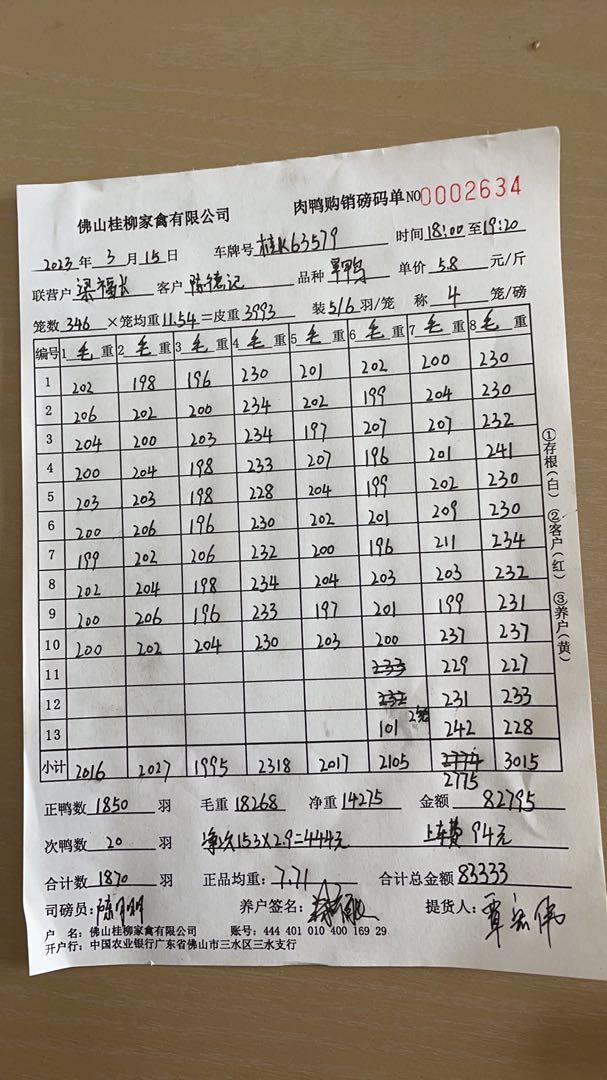 佛山桂柳家禽有限公司 肉鸭购销磅码单 NO 0002634
2023年 3 月 15 日 车牌号 桂K63579 时间 18:00 至 19:20
联营户 梁福长 客户 陈德记 品种 单价 5.8 元/斤
笼数 346 ×笼均重 11.54=皮重 3993 装 5/6 羽/笼 称 4 笼/磅
编号 1 毛 重 2 毛 重 3 毛 重 4 毛 重 5 毛 重 6 毛 重 7 毛 重 8 毛 重
1 202 198 196 230 201 202 200 230
2 206 202 200 234 202 199 204 230
3 204 200 203 234 197 207 207 232
4 200 204 198 233 207 196 201 241
5 203 203 198 228 204 199 202 230
6 200 206 196 230 202 201 209 230
7 199 202 206 232 200 196 211 234
8 202 204 198 234 204 203 203 232
9 200 206 196 233 197 201 199 231
10 200 202 204 230 203 200 237 237
11 233 229 227
12 232 231 233
13 101 2笼 242 228
小计 2016 2027 1995 2318 2017 2105 2774 3015
2775
①存根(白) ②客户(红) ③养户(黄)
正鸭数 1850 羽 毛重 18268 净重 14275 金额 82795
次鸭数 20 羽 净次153×2.9=444元 上车费94元
合计数 1870 羽 正品均重: 7.71 合计总金额 83333
司磅员: 养户签名: 提货人: 覃宏伟
户 名: 佛山桂柳家禽有限公司 账号: 444 401 010 400 169 29
开户行: 中国农业银行广东省佛山市三水区三水支行